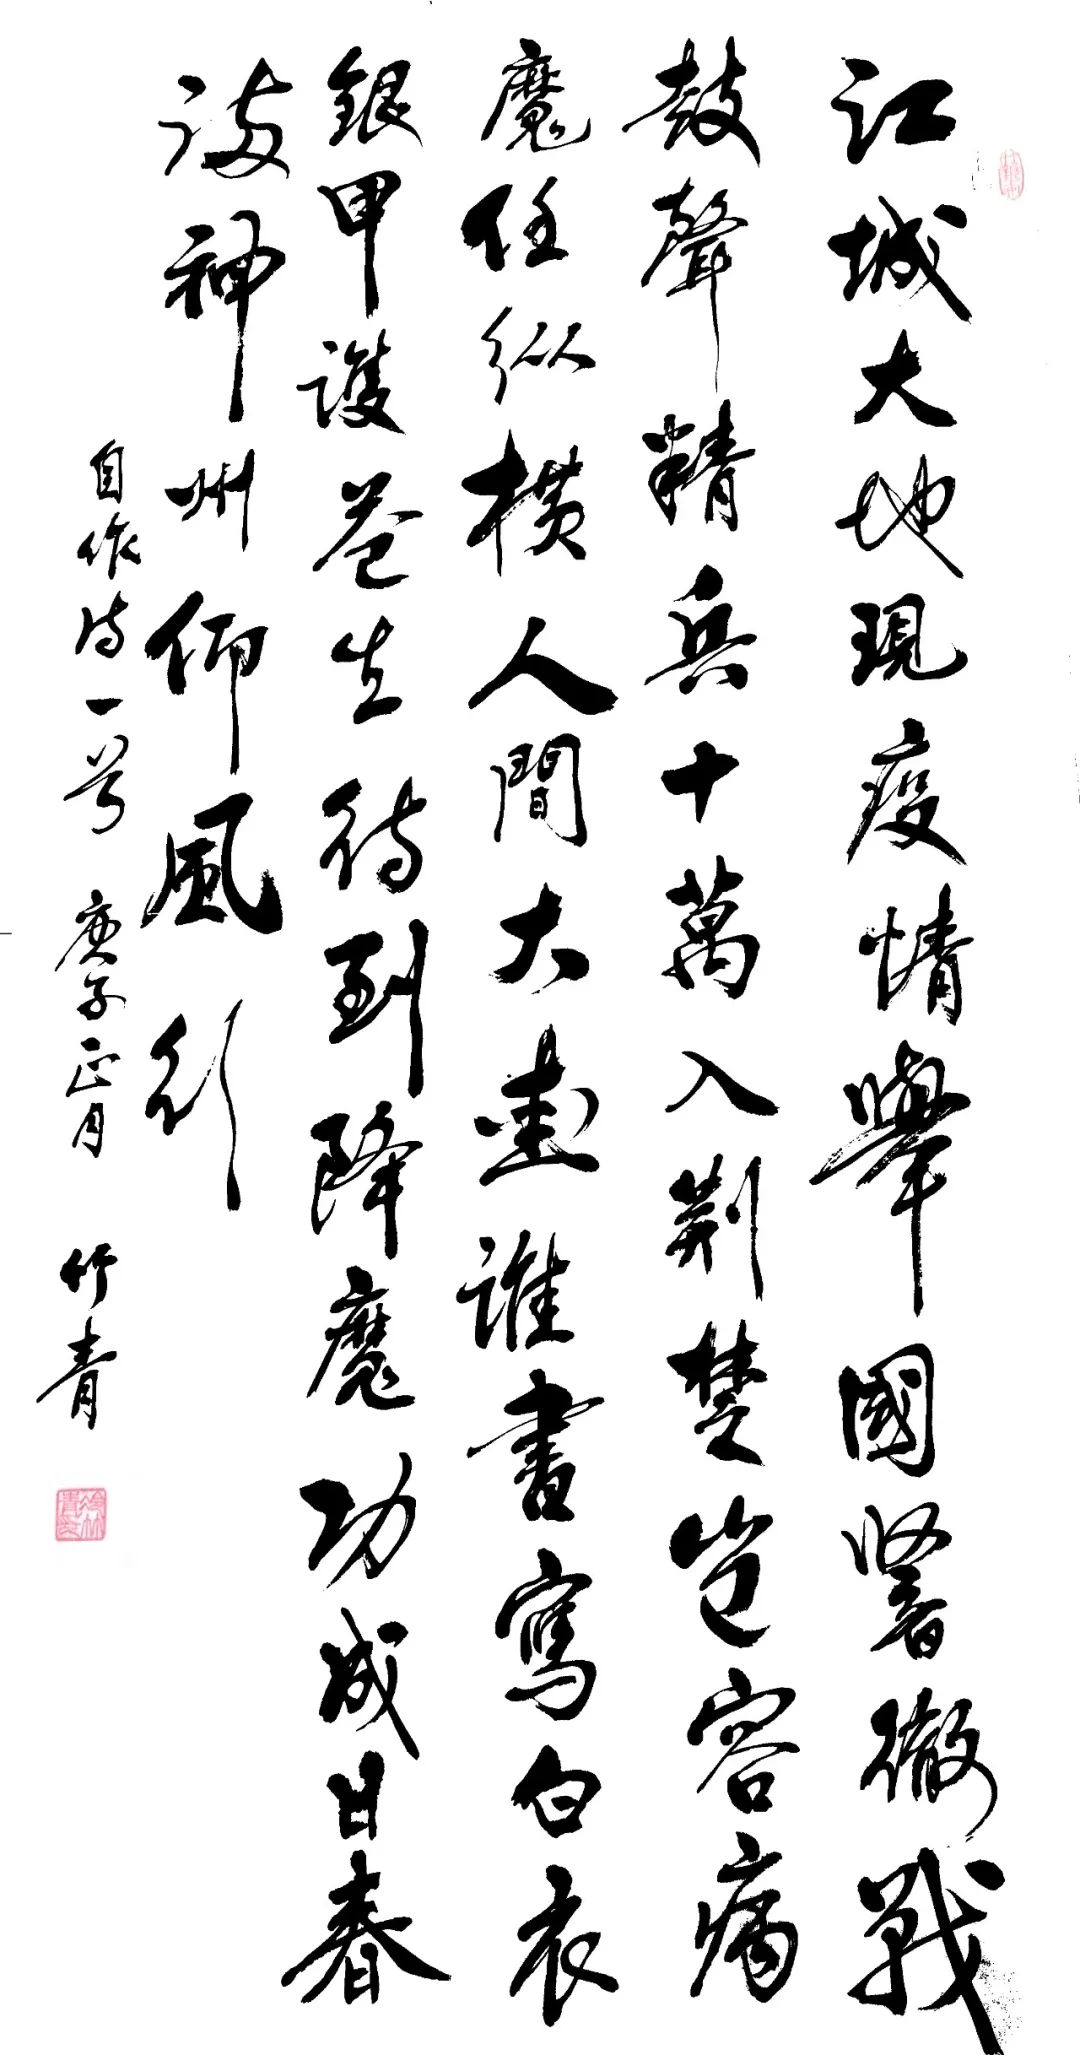 江城大地現疫情舉國響徹戰
鼓聲精兵十萬入荆楚豈容病
魔任纵横人間大愛誰書寫白衣
銀甲護蒼生待到降魔功成日春
满神州仰風行
自作诗一首 庚子正月 竹青